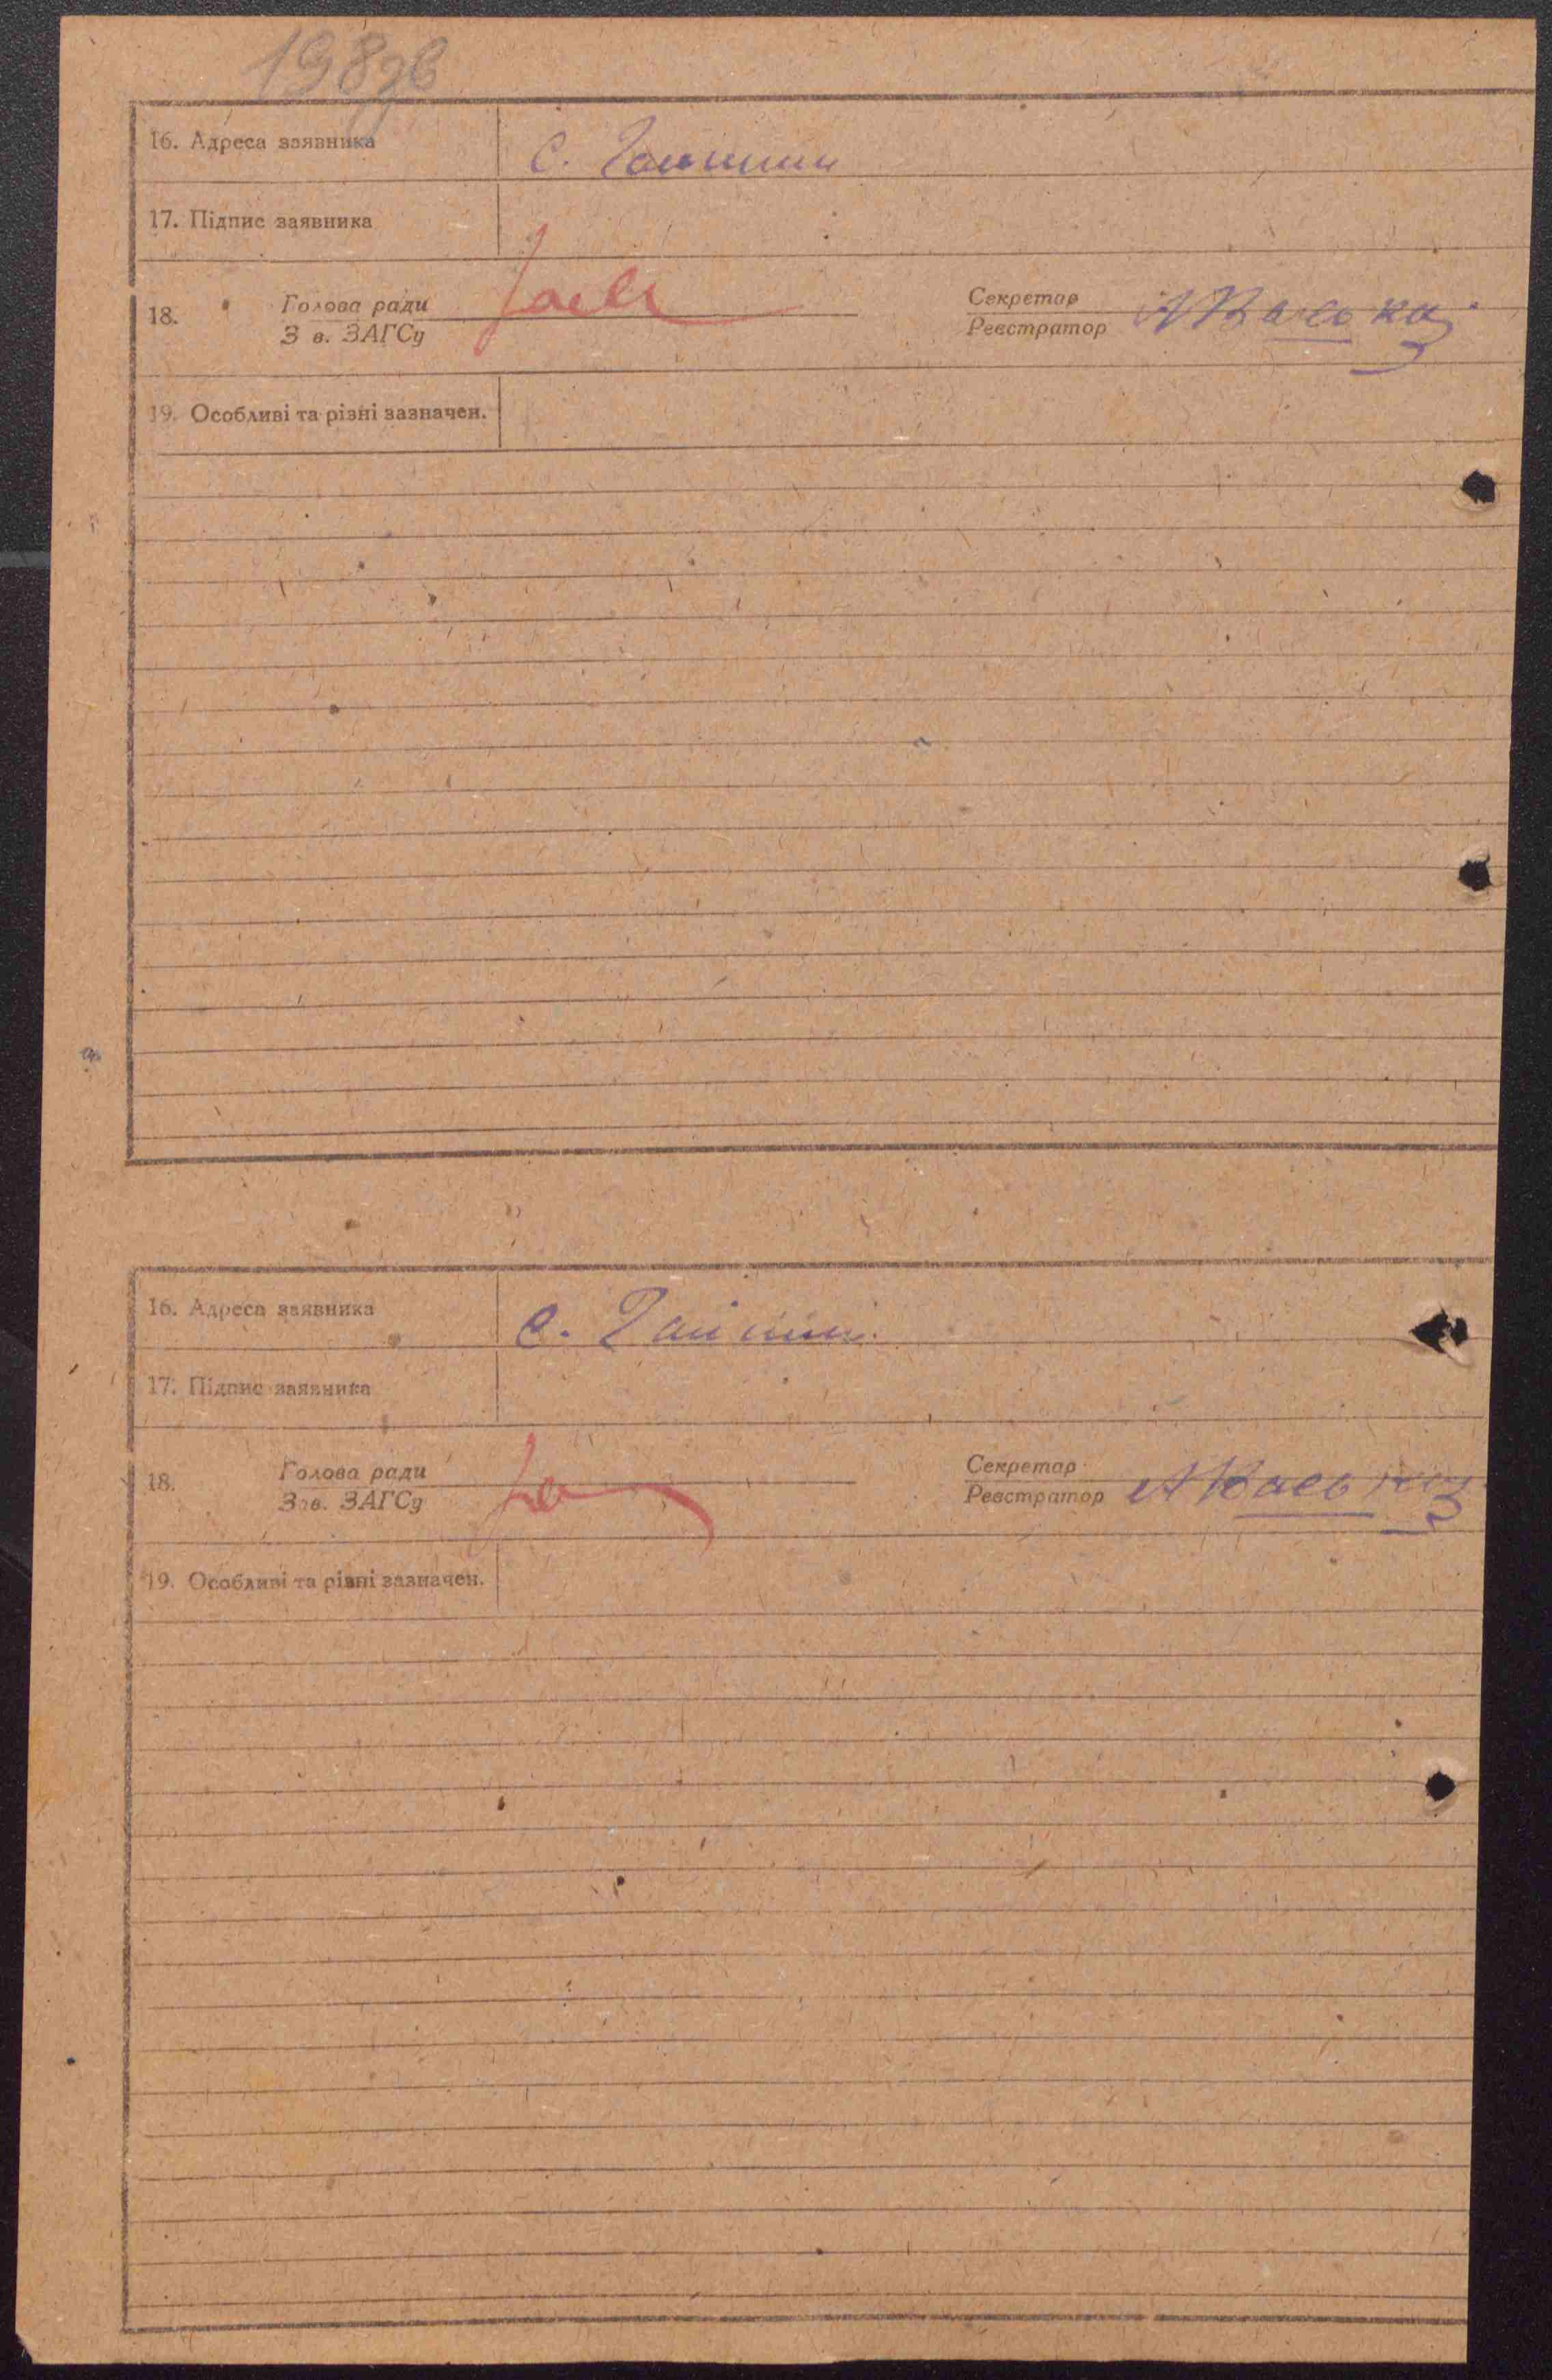 198зв
16. Адреса заявника
с. Гаишин
17. Підпис заявника
18. Голова ради
З в. ЗАГСу
Секретар
Реєстратор
19. Особливі та різні зазначен.
16. Адреса заявника
с. Гаишин.
17. Підпис заявника
18. Голова ради
Зав. ЗАГСу
Секретар
Реєстратор
19. Особливі та різні зазначен.